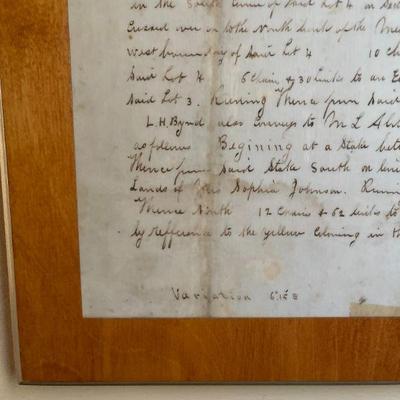 in the South
Crossed over on to the North bank of the
West boundary of said Lot 4 10 ch
Said Lot 4 6 Chains & 30 links to an E
said Lot 3. Running Thence from said
L. H. Bynd also Conveys to M L Ab
as follows Begining at a Stake bet
Thence from said Stake South on line
Lands of Mrs Sophia Johnson. Runni
Thence North 12 Chains & 62 links to
by refference to the yellow Coloring in th
Variation 6°15' E